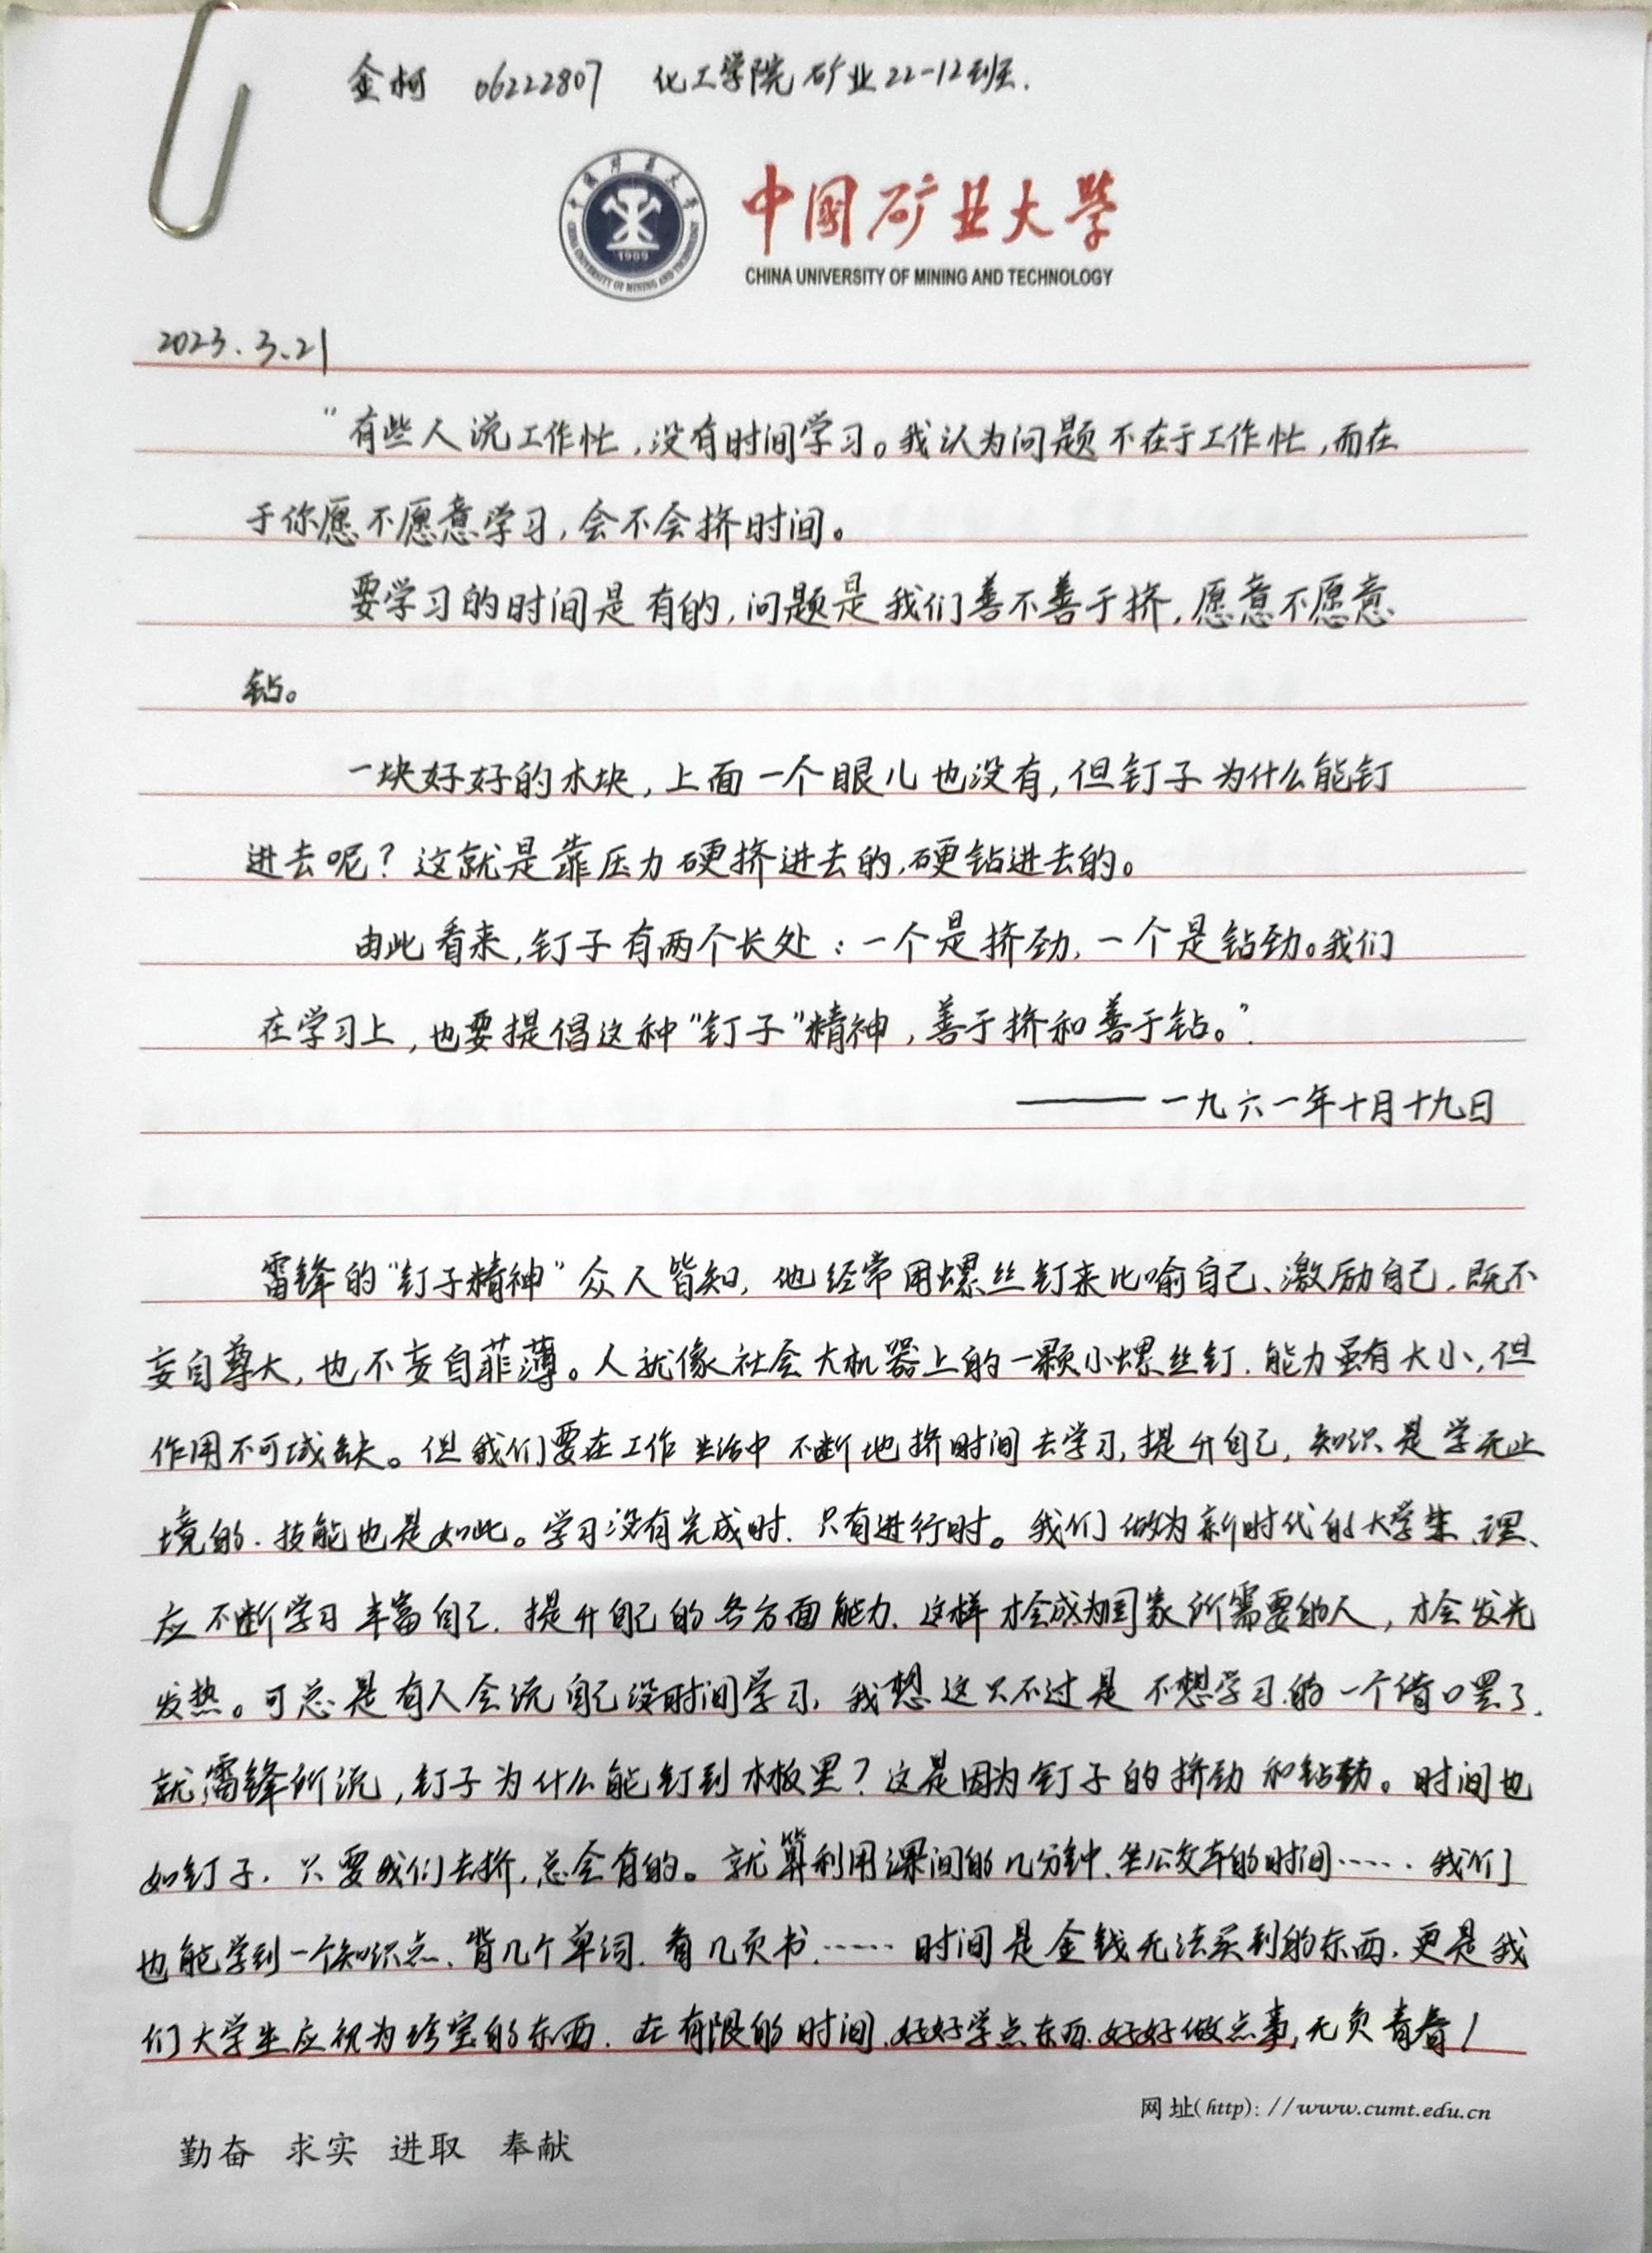 金柯 06222807 化工学院 矿业22-12班.
中国矿业大学
CHINA UNIVERSITY OF MINING AND TECHNOLOGY
1909
2023.3.21
"有些人说工作忙,没有时间学习。我认为问题不在于工作忙,而在
于你愿不愿意学习,会不会挤时间。
要学习的时间是有的,问题是我们善不善于挤,愿意不愿意
钻。
一块好好的木块,上面一个眼儿也没有,但钉子为什么能钉
进去呢?这就是靠压力硬挤进去的,硬钻进去的。
由此看来,钉子有两个长处:一个是挤劲,一个是钻劲。我们
在学习上,也要提倡这种"钉子"精神,善于挤和善于钻。".
——一九六一年十月十九日
雷锋的"钉子精神"众人皆知,他经常用螺丝钉来比喻自己、激励自己,既不
妄自尊大,也不妄自菲薄。人就像社会大机器上的一颗小螺丝钉,能力虽有大小,但
作用不可或缺。但我们要在工作生活中不断地挤时间去学习,提升自己,知识是学无止
境的,技能也是如此。学习没有完成时,只有进行时。我们做为新时代的大学生,理
应不断学习丰富自己,提升自己的各方面能力,这样才会成为国家所需要的人,才会发光
发热。可总是有人会说自己没时间学习,我想这只不过是不想学习的一个借口罢了.
就雷锋所说,钉子为什么能钉到木板里?这是因为钉子的挤劲和钻劲。时间也
如钉子,只要我们去挤,总会有的。就算利用课间的几分钟、坐公交车的时间……我们
也能学到一个知识点、背几个单词、看几页书……时间是金钱无法买到的东西,更是我
们大学生应视为珍宝的东西.在有限的时间,好好学点东西,好好做点事,无负青春!
网址(http)://www.cumt.edu.cn
勤奋 求实 进取 奉献